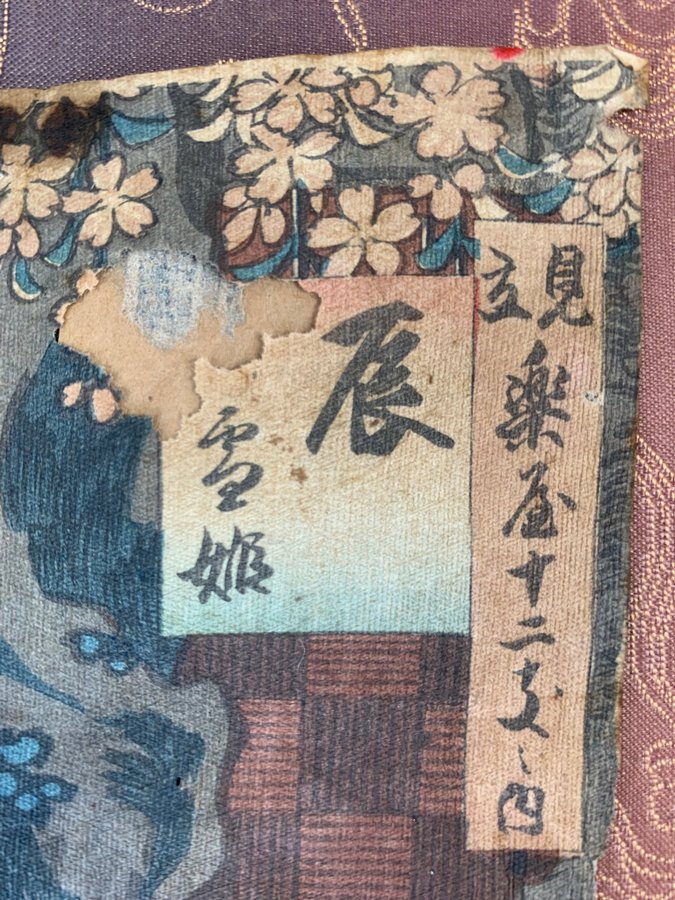 見立楽屋十二支之内
辰
雪姫